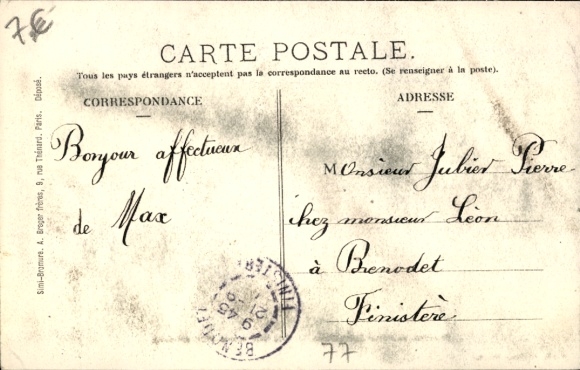 7€
CARTE POSTALE.
Tous les pays étrangers n'acceptent pas la correspondance au recto. (Se renseigner à la poste).
CORRESPONDANCE
ADRESSE
Simi-Bromure. A. Breger frères, 9, rue Thénard, Paris. Déposé.
Bonjour affectueux
de Max
Monsieur Jubier Pierre
chez monsieur Léon
à Benodet
Finistère
BENODET FINISTERE
9 45
21
77